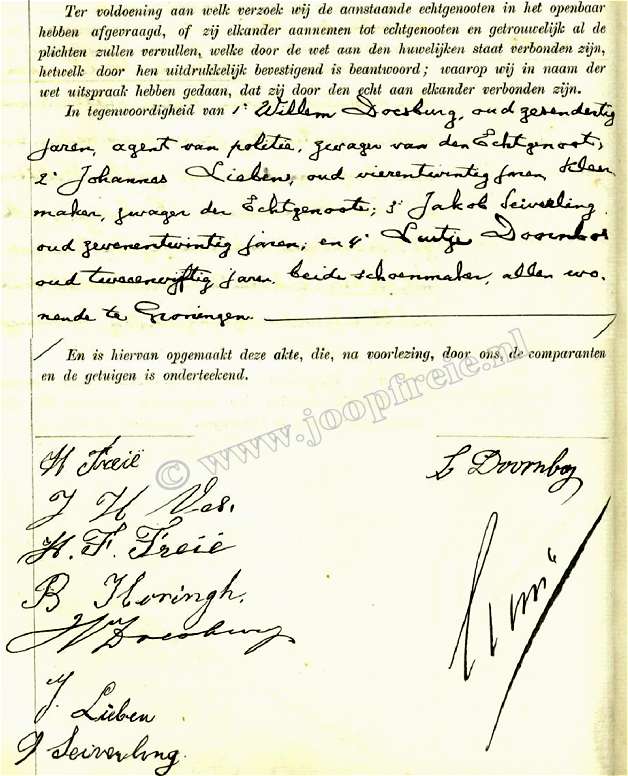 Ter voldoening aan welk verzoek wij de aanstaande echtgenooten in het openbaar
hebben afgevraagd, of zij elkander aannemen tot echtgenooten en getrouwelijk al de
plichten zullen vervullen, welke door de wet aan den huwelijken staat verbonden zijn,
hetwelk door hen uitdrukkelijk bevestigend is beantwoord; waarop wij in naam der
wet uitspraak hebben gedaan, dat zij door den echt aan elkander verbonden zijn.
In tegenwoordigheid van 1° Willem Doesburg, oud zesendertig
jaren, agent van politie, zwager van den Echtgenoot;
2° Johannes Lieben, oud vierentwintig jaren, kleer-
maker, zwager der Echtgenoote; 3° Jakob Seiverling,
oud zevenentwintig jaren; en 4° Luitje Doornbos
oud tweeenvijftig jaren, beide schoenmaker, allen wo-
nende te Groningen.
En is hiervan opgemaakt deze akte, die, na voorlezing, door ons, de comparanten
en de getuigen is onderteekend.
© www.joopfreie.nl
H Freië
L Doornbos
J H Vos.
H. F. Freië
B Horingh.
W Doesburg
J. Lieben
J Seiverling.